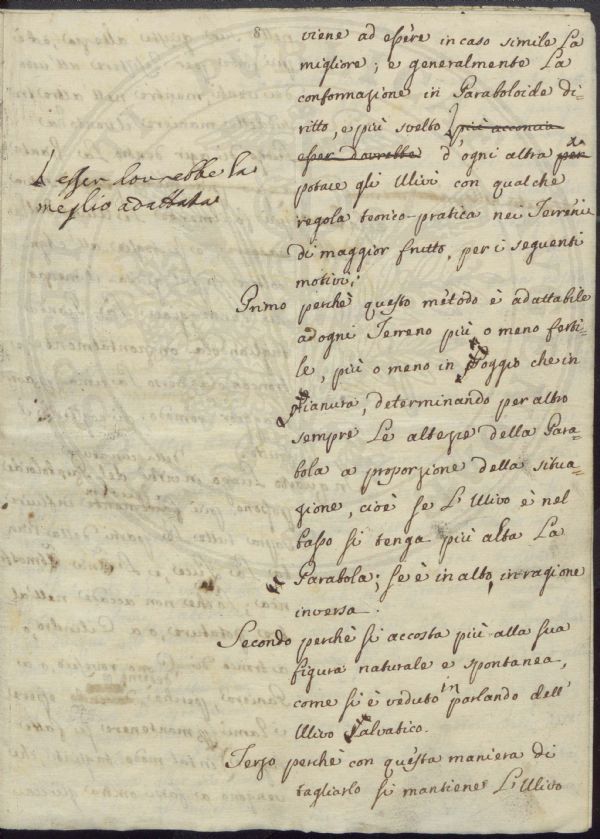 8
viene ad essere in caso simile La
migliore; e generalmente La
conformazione in Paraboloide di-
ritto, e più svelto più acconcia
esser dovrebbe d'ogni altra per
esser dovrebbe la
meglio adattata
potare gli Ulivi con qualche
regola teorico-pratica nei Terreni
di maggior frutto, per i seguenti
motivi;
Primo perchè questo metodo è adattabile
ad ogni Terreno più o meno ferti-
le, più o meno in Poggio che in
Pianura, determinando per altro
sempre Le altezze della Para-
bola a proporzione della situa-
zione, cioè se L'Ulivo è nel
basso si tenga più alta La
Parabola; se è in alto, in ragione
inversa.
Secondo perchè si accosta più alla sua
figura naturale e spontanea,
come si è veduto in parlando dell'
Ulivo Salvatico.
Terzo perchè con questa maniera di
tagliarlo si mantiene L'Ulivo